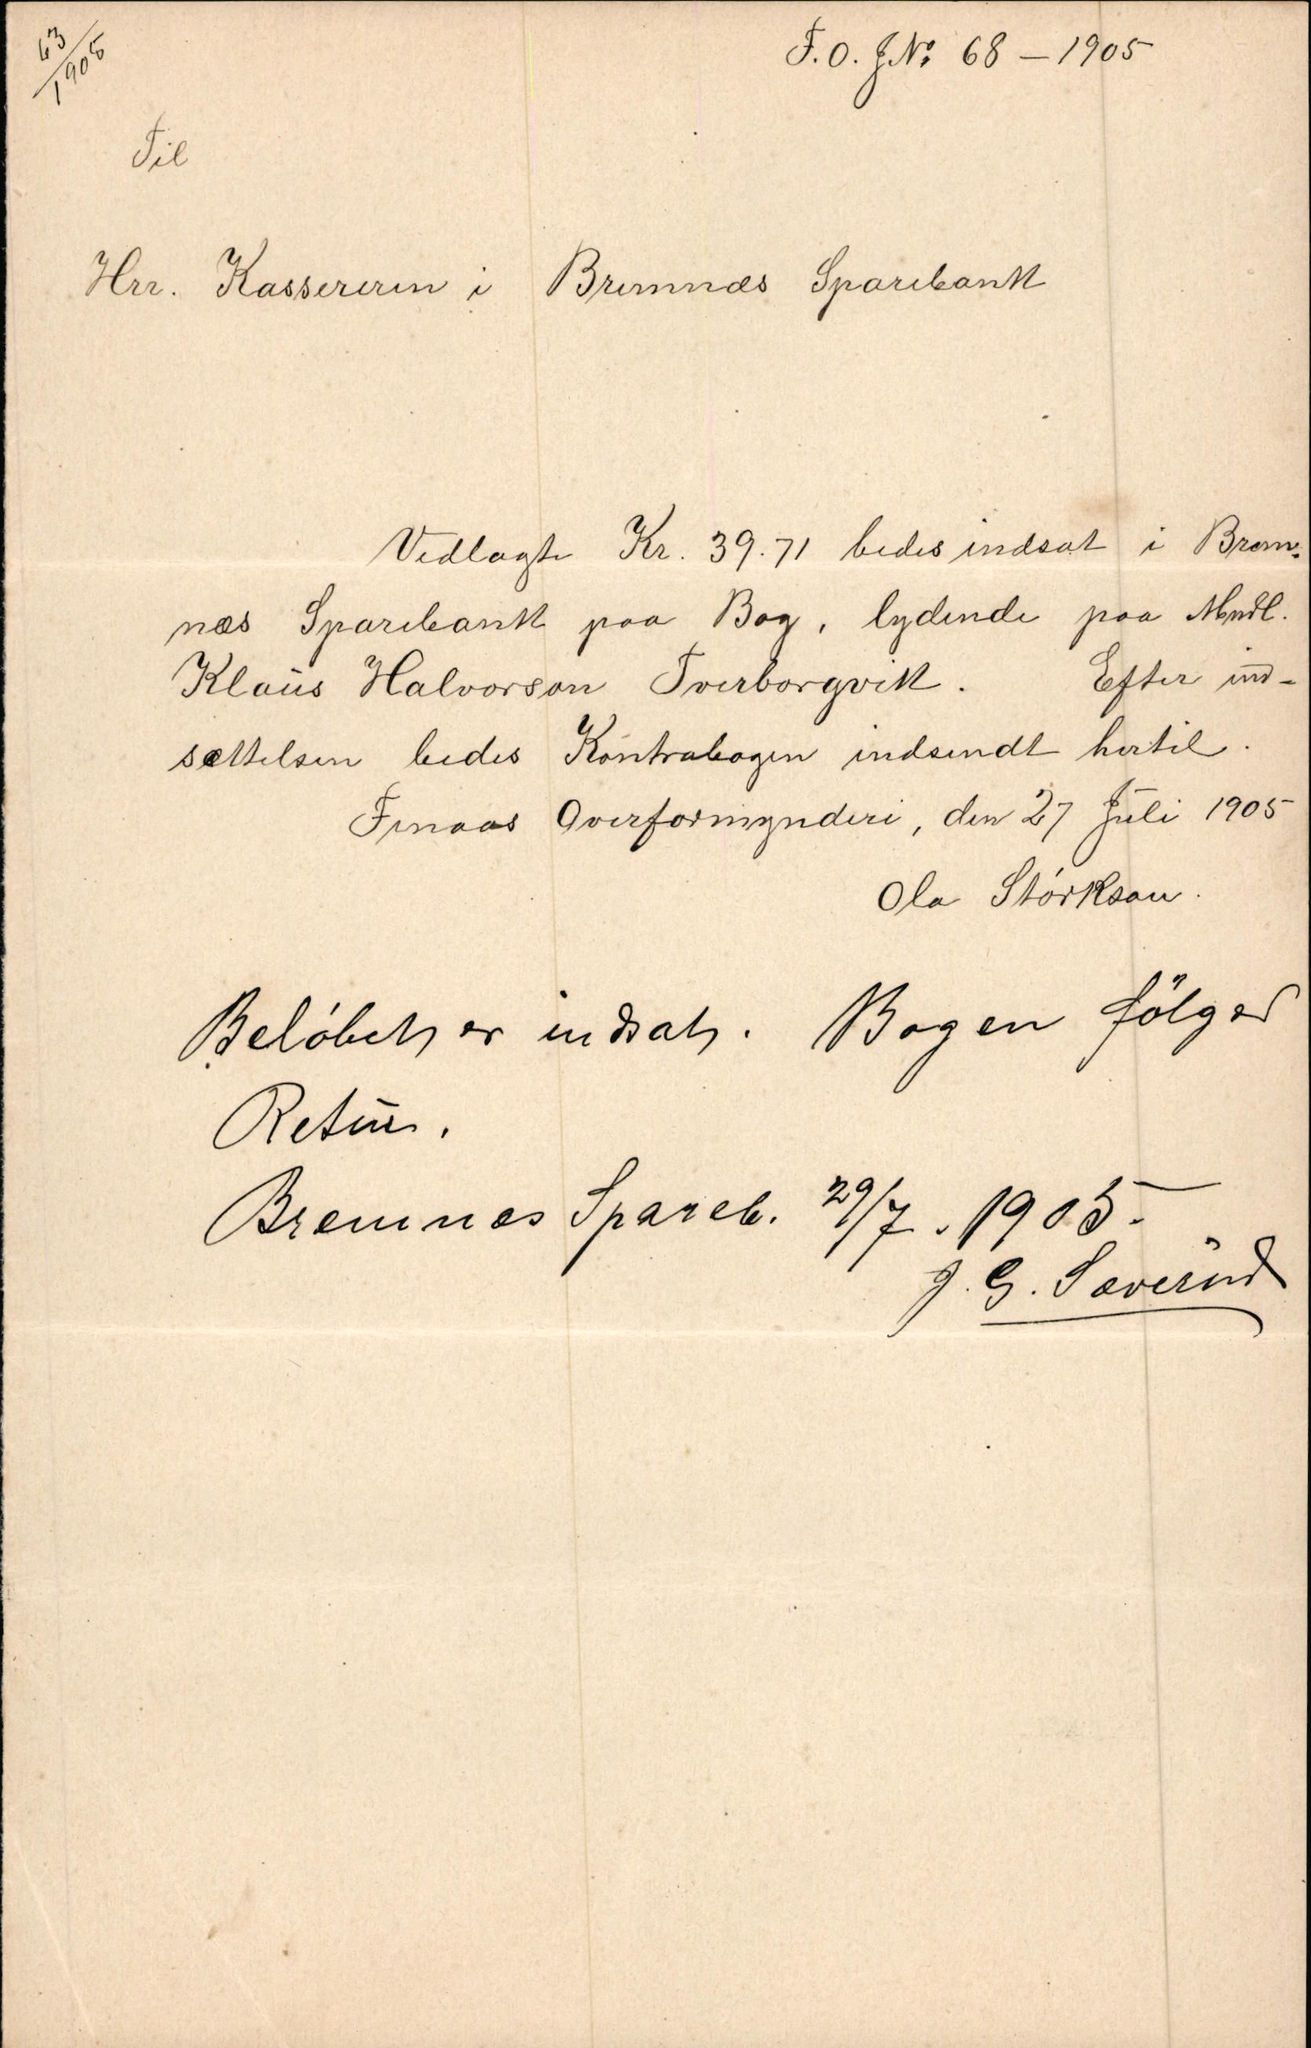 63/1905
F. O. J.No 68 – 1905
Til
Hrr. Kassereren i Bremnæs Sparebank
Vedlagte Kr. 39.71 bedes indsat i Brem-
næs Sparebank paa Bog, lydende paa Mndl.
Klaus Halvorson Tverborgvik. Efter ind-
sættelsen bedes Kontrabogen indsendt hertil.
Finaas Overformynderi, den 27 Juli 1905
Ola Størkson.
Beløbet er indsat. Bogen følger
Retur.
Bremnes Spareb. 29/7. 1905.
J. G. Sæverud